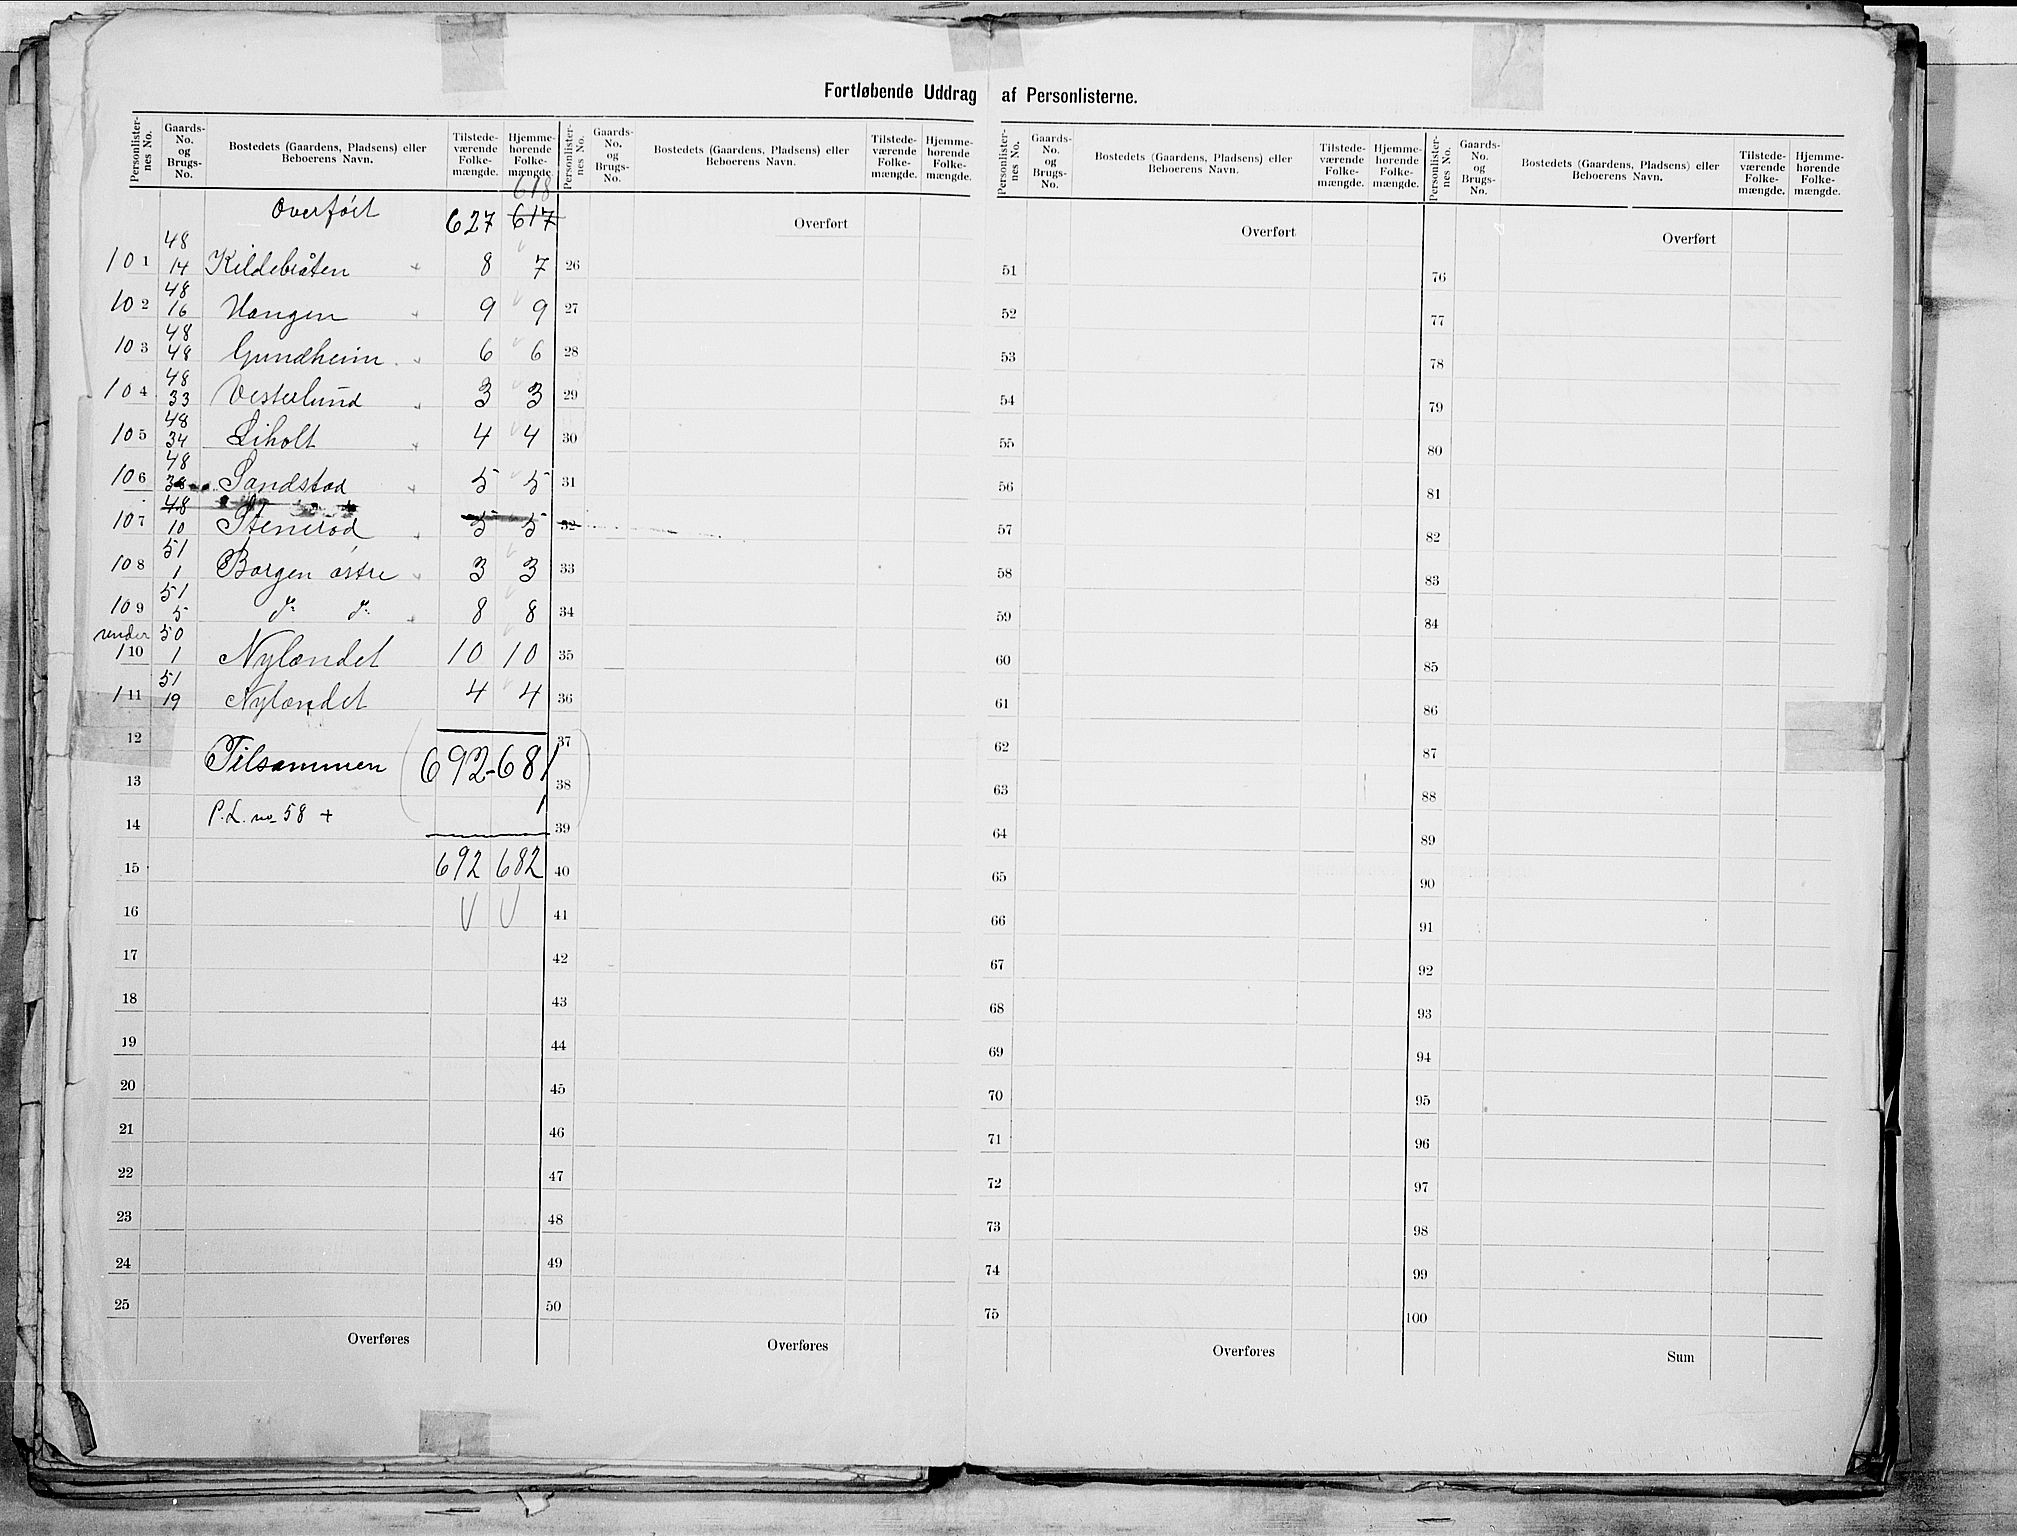 Fortløbende Uddrag af Personlisterne.
Personlister-nes No. Gaards-No. og Brugs-No. Bostedets (Gaardens, Pladsens) eller Beboerens Navn. Tilstede-værende Folke-mængde. Hjemme-hørende Folke-mængde.
618
Overført 627 617
101 48/14 Kildebråten 8 7
102 48/16 Hangen 9 9
103 48/48 Gundheim 6 6
104 48/33 Vesterlund 3 3
105 48/34 Liholt 4 4
106 48/38 Sandstad 5 5
107 48/10 Stenerød 5 5
108 51/1 Borgen østre 3 3
109 51/5 do do 8 8
under 110 50/1 Nylandet 10 10
111 51/19 Nylandet 4 4
12
Tilsammen (692-681)
13
P.L. no 58 + 1
14
15 692 682
16
17
18
19
20
21
22
23
24
25
Overføres
Personlister-nes No. Gaards-No. og Brugs-No. Bostedets (Gaardens, Pladsens) eller Beboerens Navn. Tilstede-værende Folke-mængde. Hjemme-hørende Folke-mængde.
Overført
26
27
28
29
30
31
32
33
34
35
36
37
38
39
40
41
42
43
44
45
46
47
48
49
50
Overføres
Personlister-nes No. Gaards-No. og Brugs-No. Bostedets (Gaardens, Pladsens) eller Beboerens Navn. Tilstede-værende Folke-mængde. Hjemme-hørende Folke-mængde.
Overført
51
52
53
54
55
56
57
58
59
60
61
62
63
64
65
66
67
68
69
70
71
72
73
74
75
Overføres
Personlister-nes No. Gaards-No. og Brugs-No. Bostedets (Gaardens, Pladsens) eller Beboerens Navn. Tilstede-værende Folke-mængde. Hjemme-hørende Folke-mængde.
Overført
76
77
78
79
80
81
82
83
84
85
86
87
88
89
90
91
92
93
94
95
96
97
98
99
100
Sum